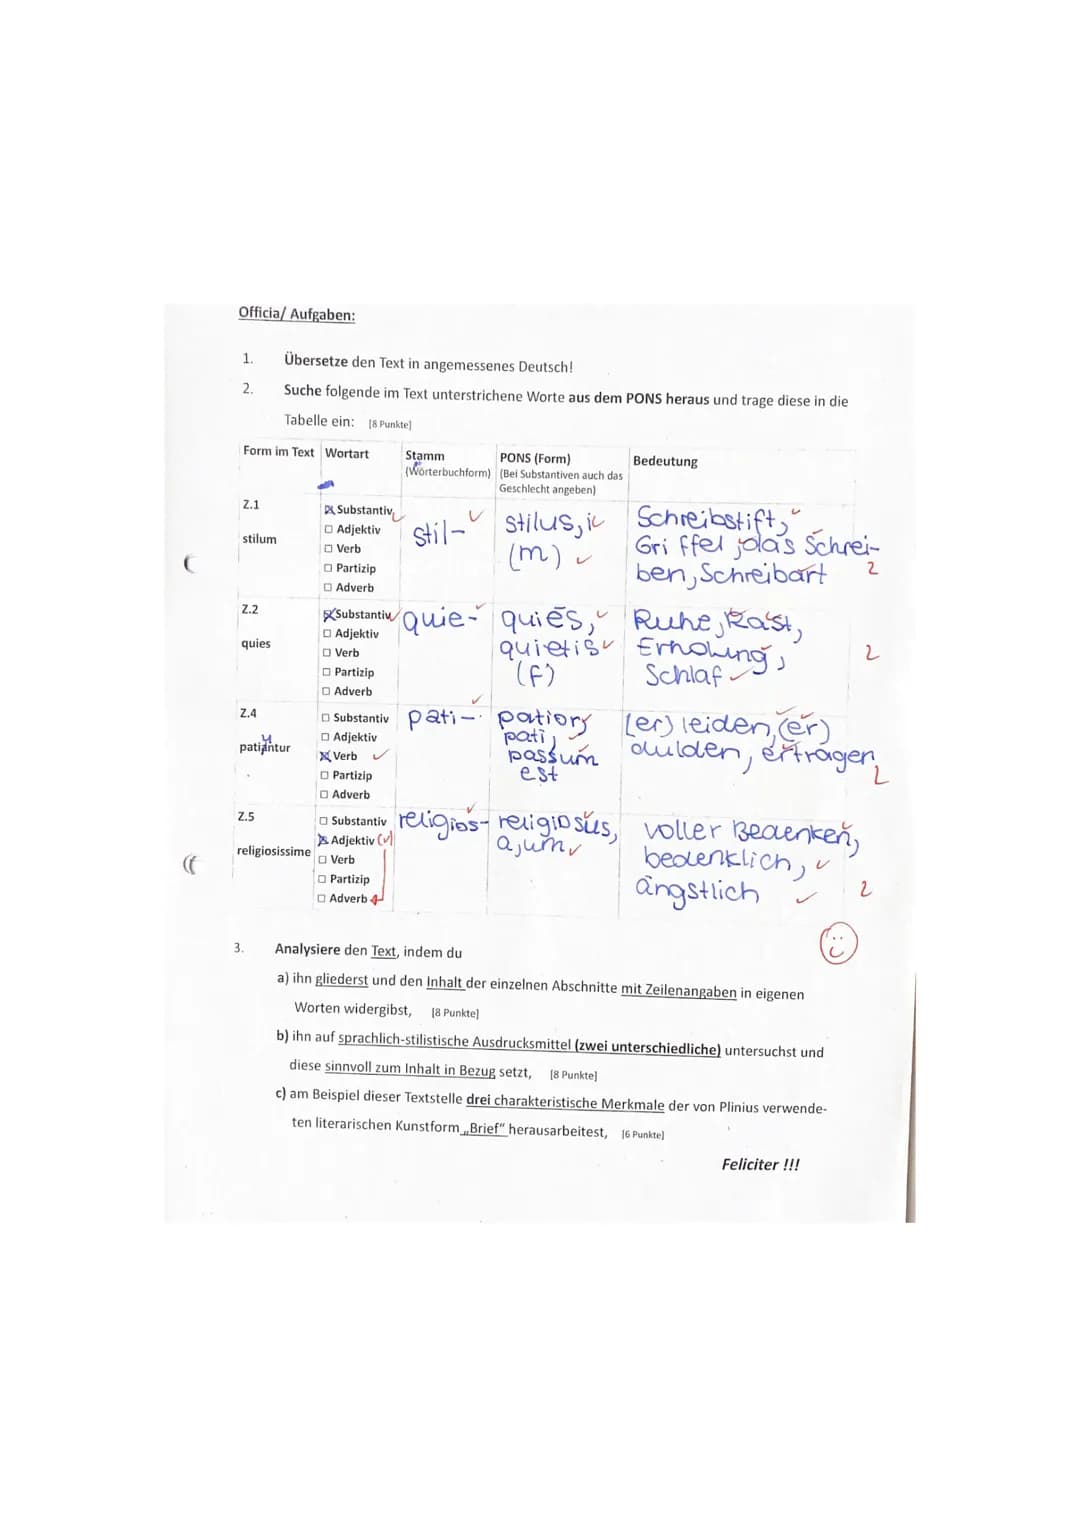 Officia/ Aufgaben:
1. Übersetze den Text in angemessenes Deutsch!
2. Suche folgende im Text unterstrichene Worte aus dem PONS heraus und trage diese in die
Tabelle ein: [8 Punkte]
Form im Text Wortart Stamm PONS (Form) Bedeutung
(Wörterbuchform) (Bei Substantiven auch das
Geschlecht angeben)
Z.1
stilum
☒ Substantiv
☐ Adjektiv
☐ Verb
☐ Partizip
☐ Adverb
stil-
stilus, i
(m)
Schreibstift,
Griffel; das Schrei-
ben, Schreibart
2
Z.2
quies
☒ Substantiv
☐ Adjektiv
☐ Verb
☐ Partizip
☐ Adverb
quie-
quiēs,
quietis
(f)
Ruhe, Rast,
Erholung,
Schlaf
2
Z.4
patiuntur
☐ Substantiv
☐ Adjektiv
☒ Verb
☐ Partizip
☐ Adverb
pati-
patior,
pati,
passum
est
(er) leiden, (er)
dulden, ertragen
2
Z.5
religiosissime
☐ Substantiv
☒ Adjektiv (✓)
☐ Verb
☐ Partizip
☐ Adverb
religios-
religiosus,
a, um
voller Bedenken,
bedenklich,
ängstlich
2
3. Analysiere den Text, indem du
a) ihn gliederst und den Inhalt der einzelnen Abschnitte mit Zeilenangaben in eigenen
Worten widergibst, [8 Punkte]
b) ihn auf sprachlich-stilistische Ausdrucksmittel (zwei unterschiedliche) untersuchst und
diese sinnvoll zum Inhalt in Bezug setzt, [8 Punkte]
c) am Beispiel dieser Textstelle drei charakteristische Merkmale der von Plinius verwende-
ten literarischen Kunstform „Brief“ herausarbeitest, [6 Punkte]
Feliciter !!!